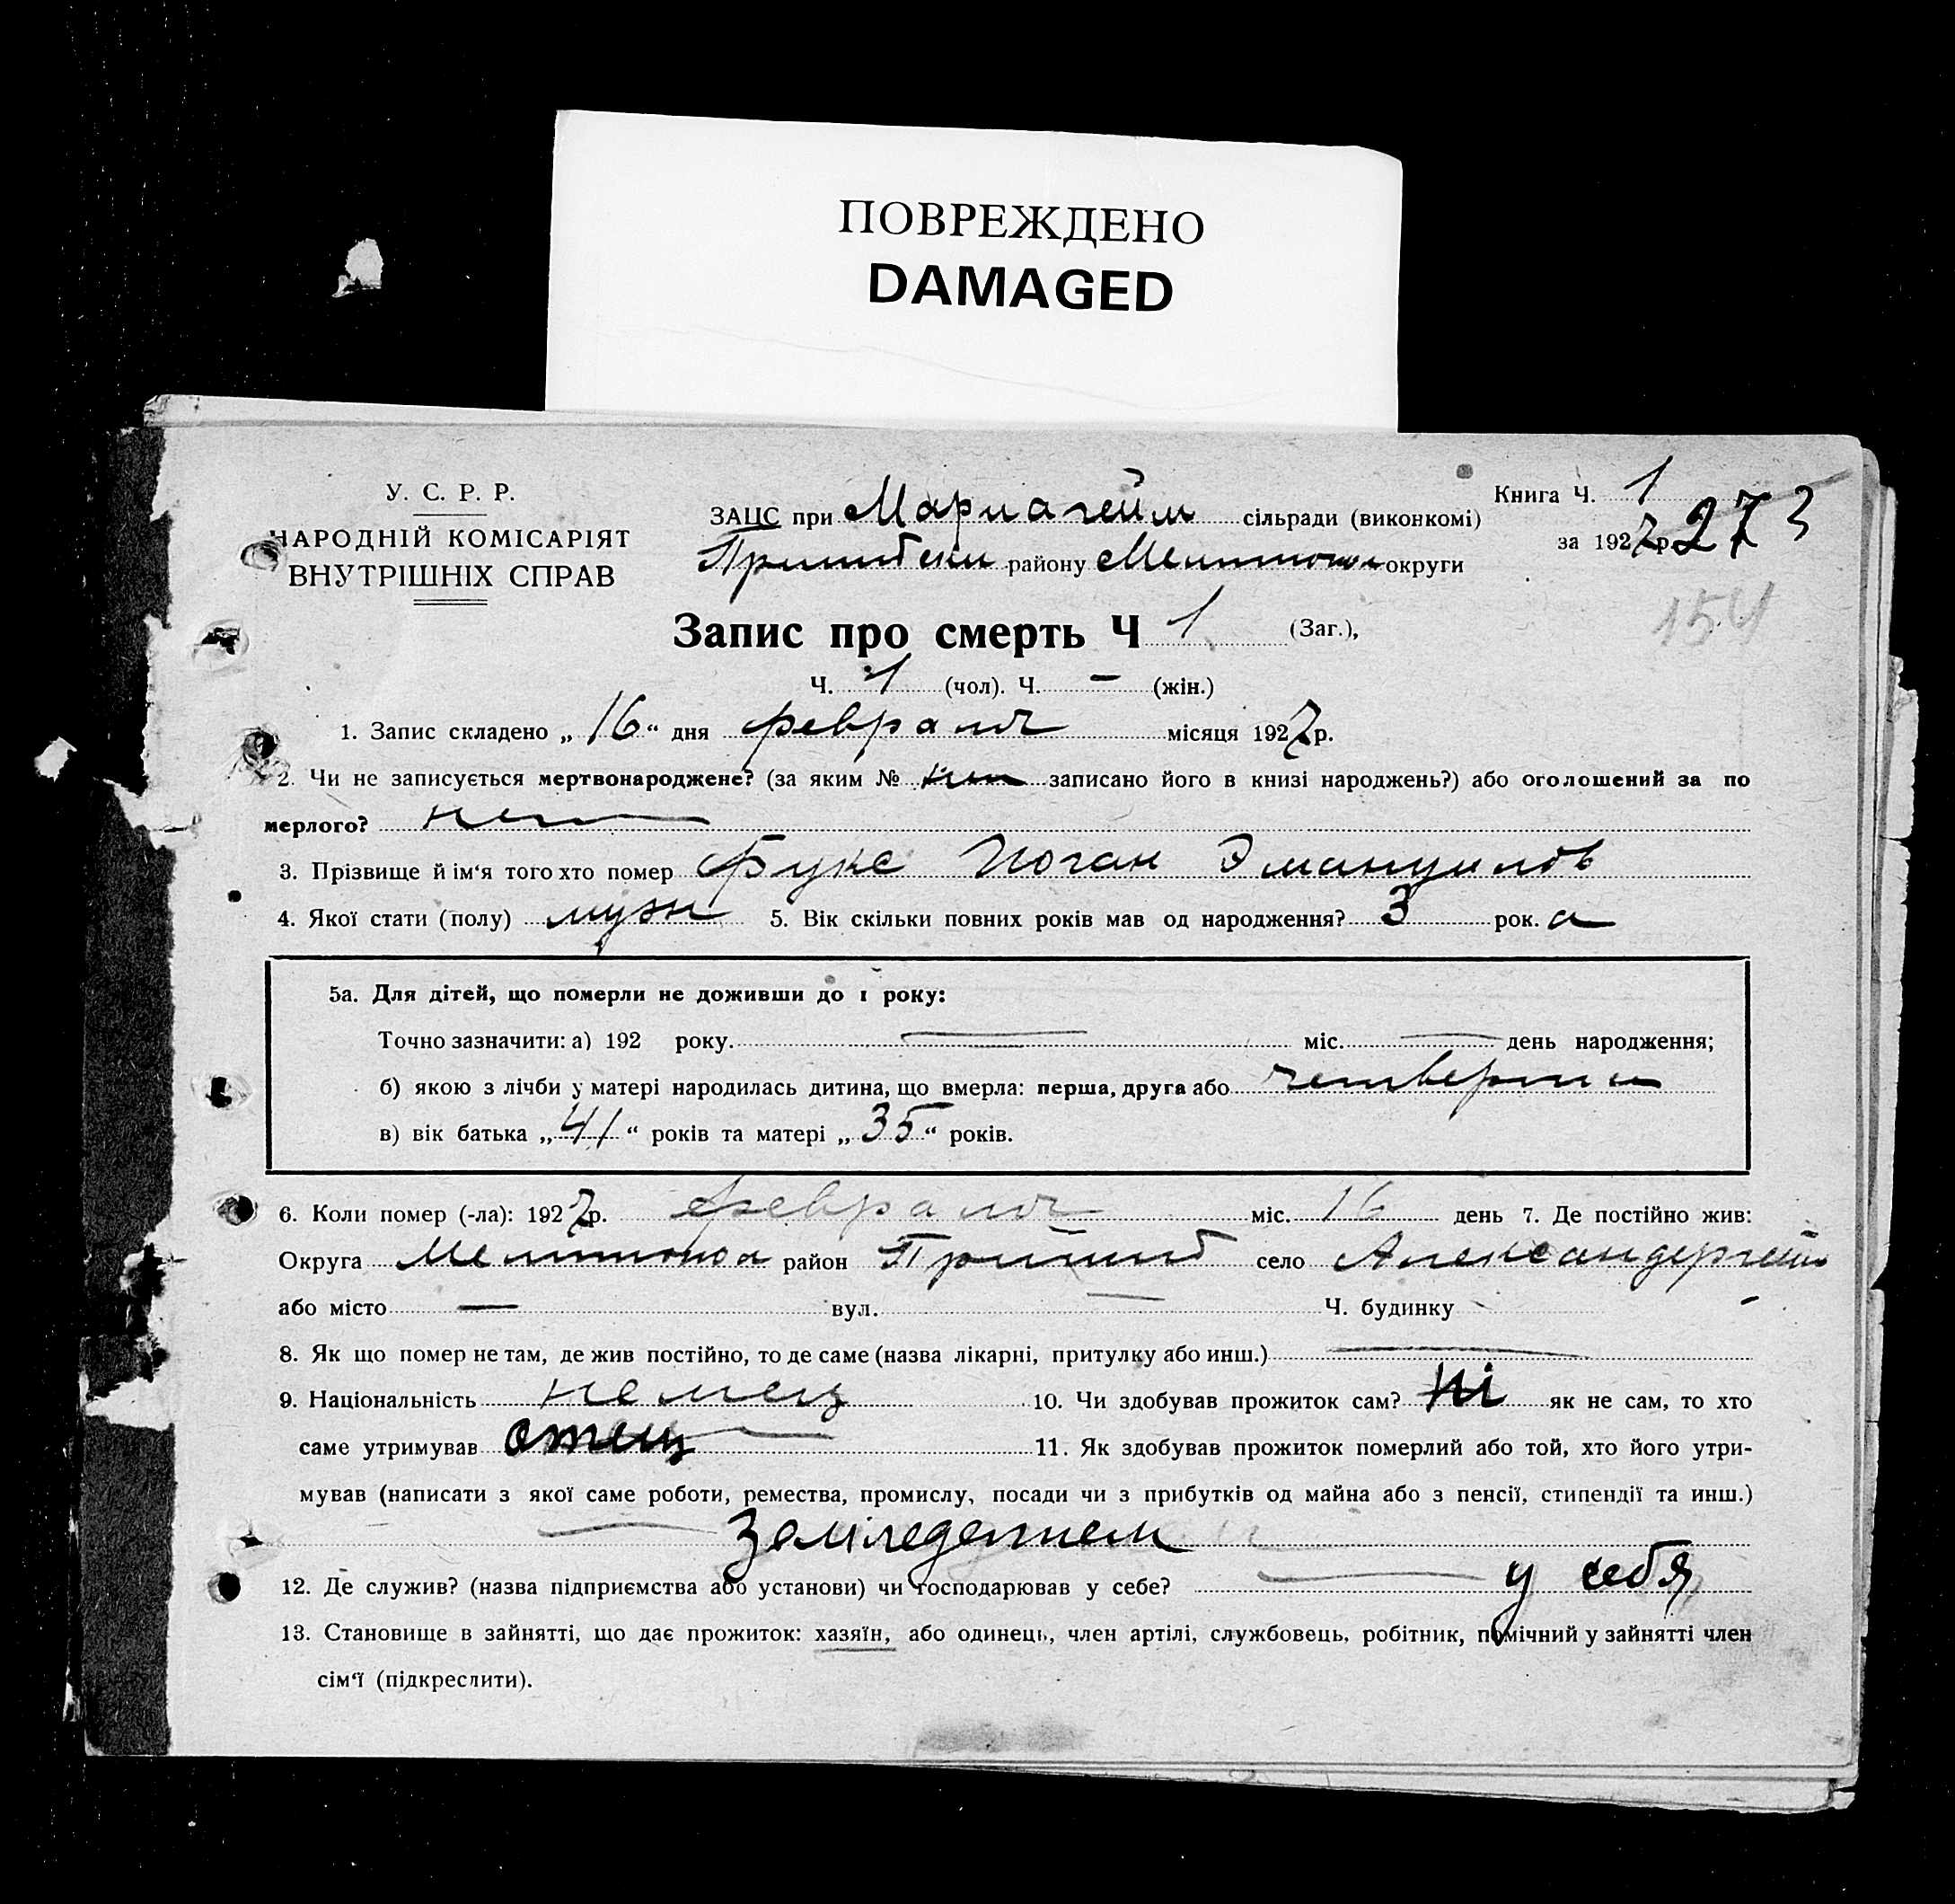 ПОВРЕЖДЕНО
DAMAGED
У. С. Р. Р.
НАРОДНІЙ КОМІСАРІЯТ
ВНУТРІШНІХ СПРАВ
ЗАЦС при Мариагейм сільради (виконкомі)
району Мелитопол округи
Книга Ч. 1
за 1927 р. 273
154
Запис про смерть Ч 1 (Заг.),
Ч. 1 (чол). Ч. – (жін.)
1. Запис складено „ 16 “ дня февраля місяця 1927 р.
2. Чи не записується мертвонароджене? (за яким № нет записано його в книзі народжень?) або оголошений за по
мерлого? нет
3. Прізвище й ім‘я того хто помер Фукс Иоган Эмануилов
4. Якої стати (полу) муж 5. Вік скільки повних років мав од народження? 3 рок. а
5а. Для дітей, що померли не доживши до 1 року:
Точно зазначити: а) 192 року. — міс. — день народження;
б) якою з лічби у матері народилась дитина, що вмерла: перша, друга або
в) вік батька „ 41 “ років та матері „ 35 “ років.
6. Коли помер (-ла): 1927 р. февраля міс. 16 день 7. Де постійно жив:
Округа Мелитопол район Пришиб село Александергейм
або місто — вул. — Ч. будинку -
8. Як що помер не там, де жив постійно, то де саме (назва лікарні, притулку або инш.) —
9. Національність немец 10. Чи здобував прожиток сам? Ні як не сам, то хто
саме утримував отец 11. Як здобував прожиток померлий або той, хто його утри-
мував (написати з якої саме роботи, ремества, промислу, посади чи з прибутків од майна або з пенсії, стипендії та инш.)
12. Де служив? (назва підприємства або установи) чи господарював у себе? — у себя
13. Становище в зайнятті, що дає прожиток: хазяїн, або одинець, член артілі, службовець, робітник, помічний у зайнятті член
сім‘ї (підкреслити).